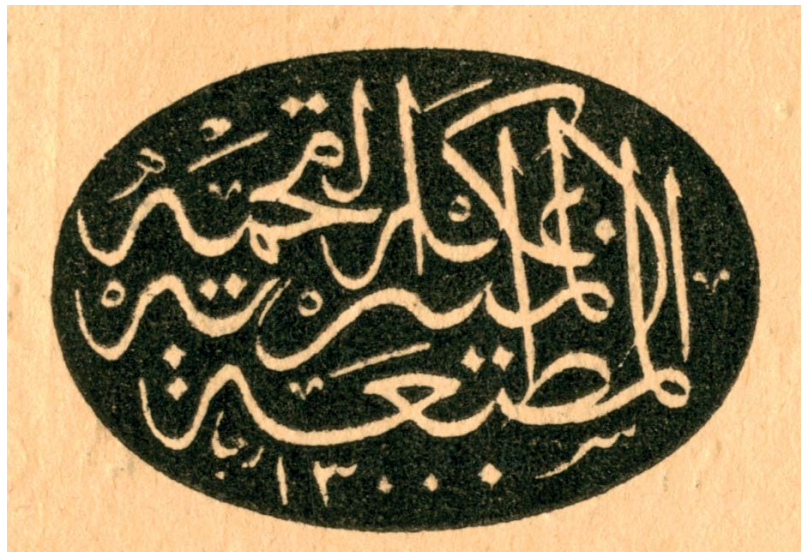 المطبعة
الميرية
بمكة المحمية
سنة ١٣٠٠